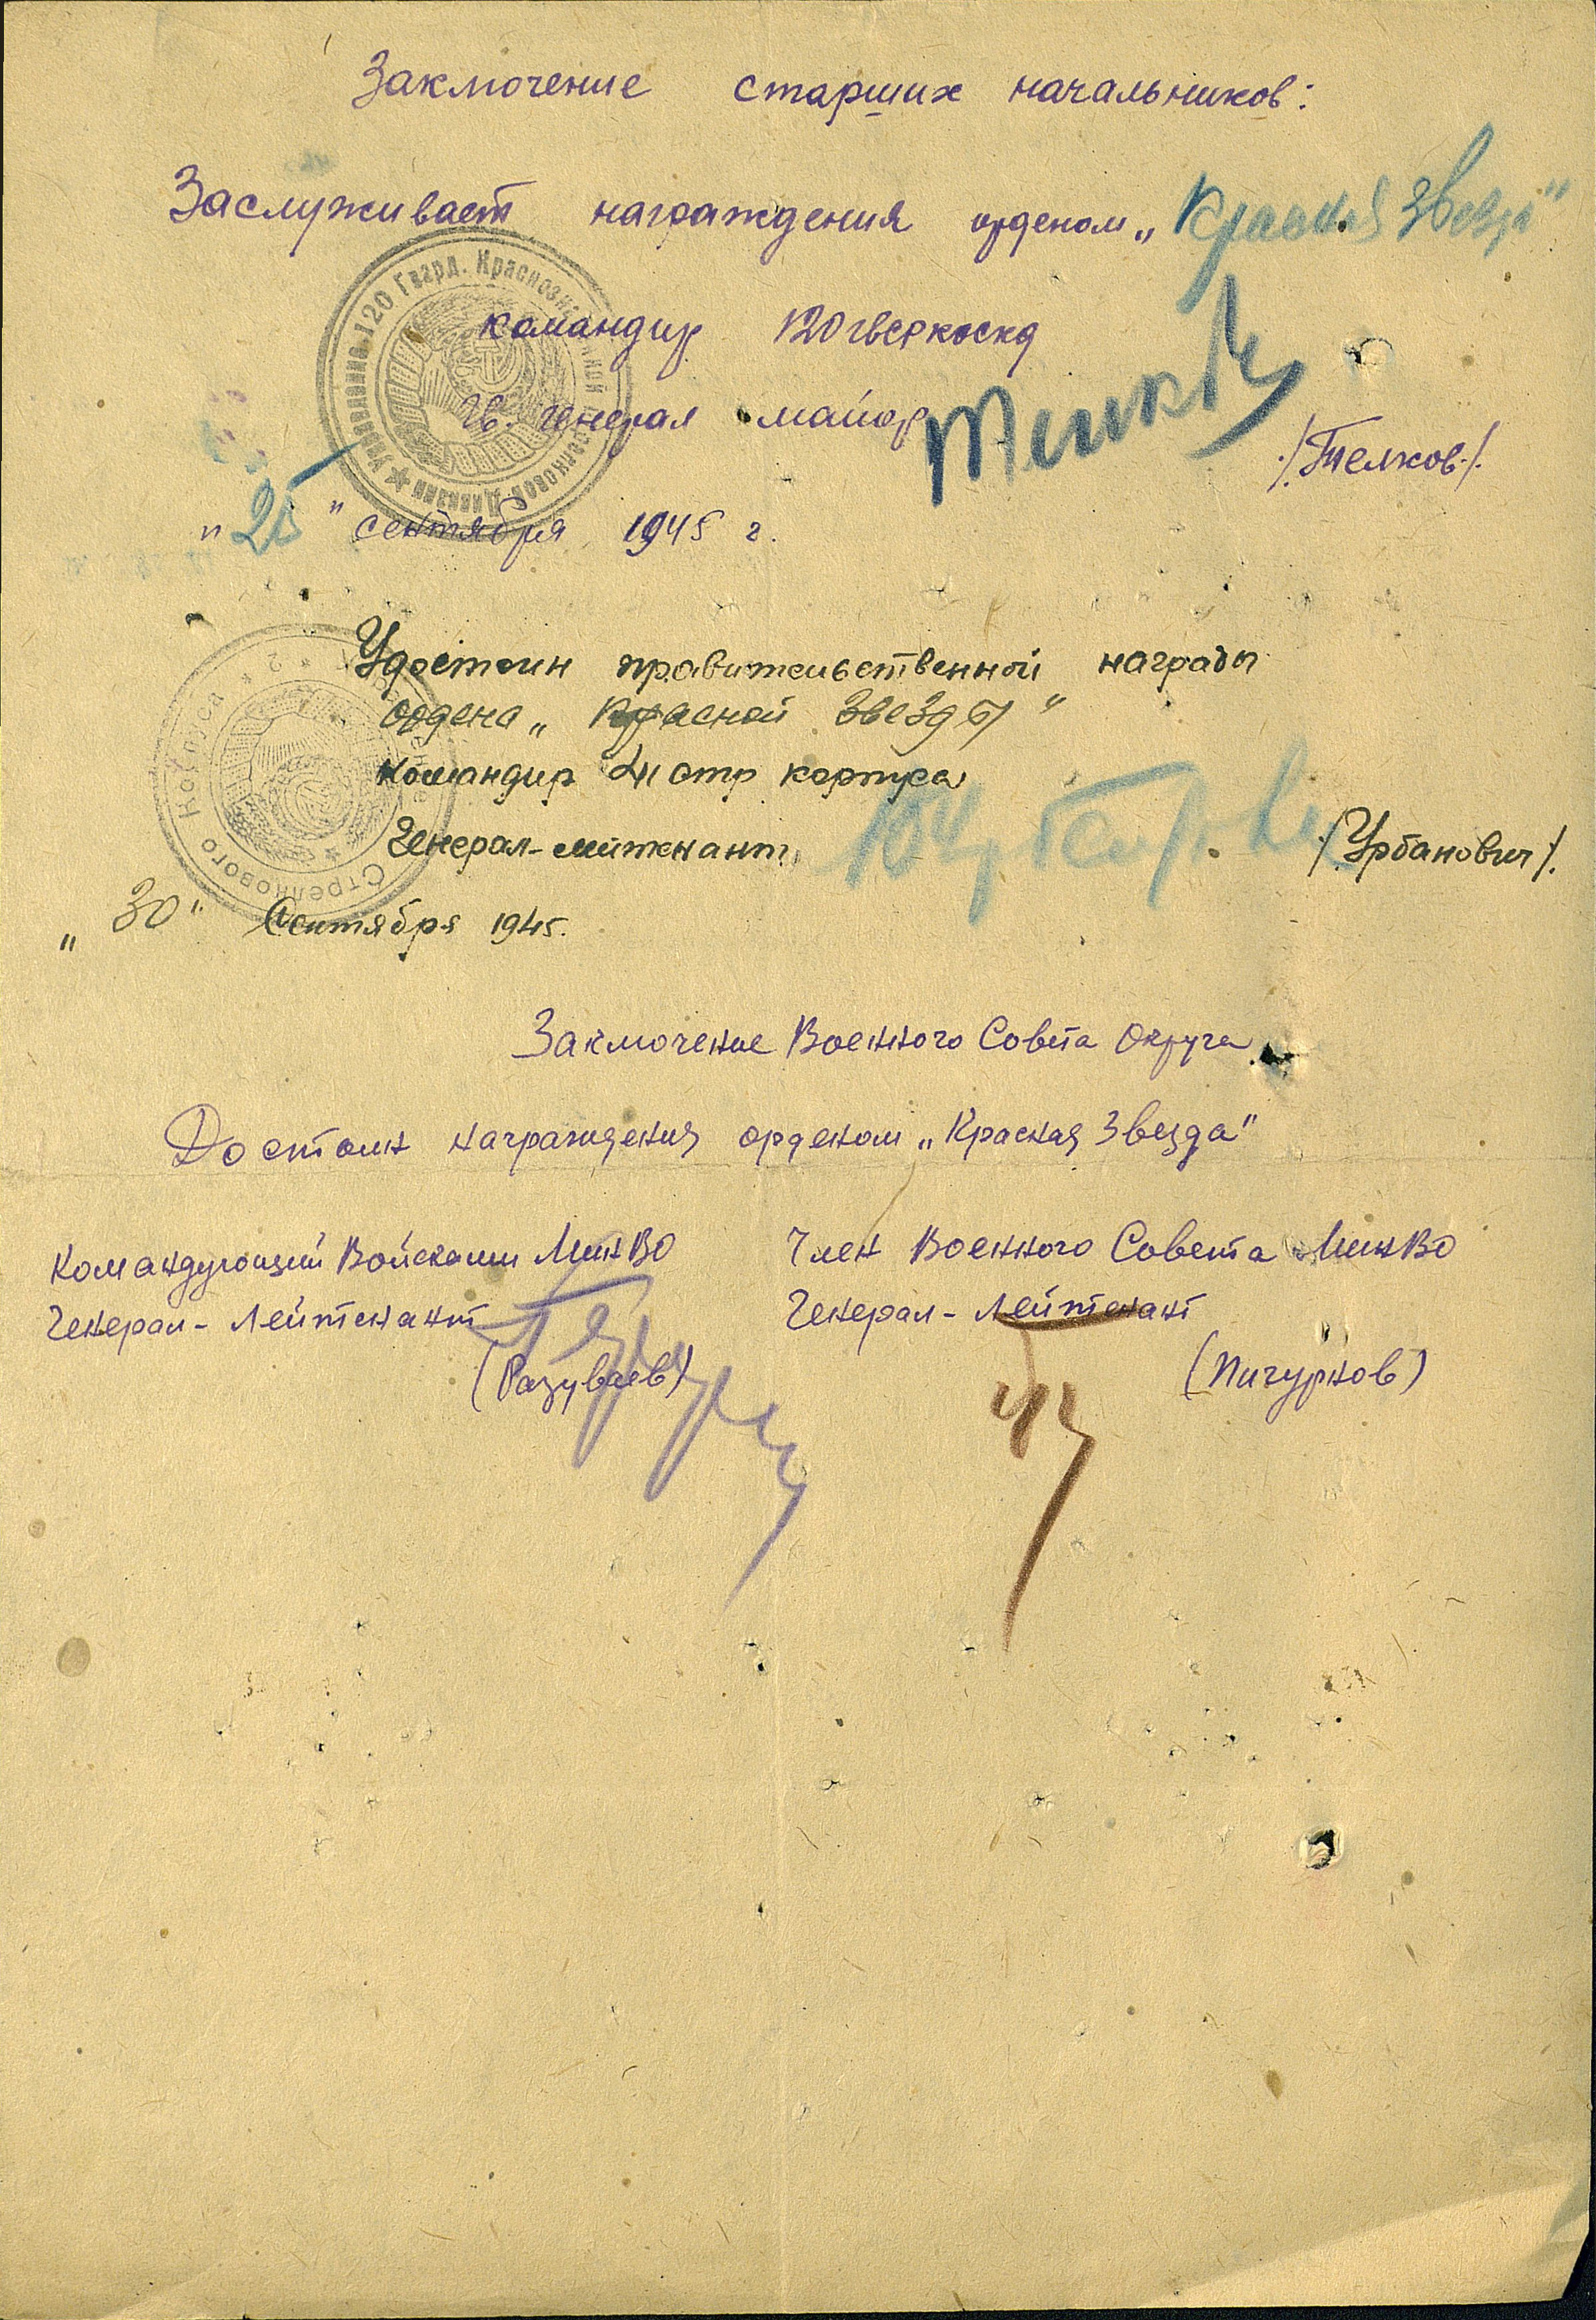 Заключение старших начальников:
Заслуживает награждения орденом „Красная Звезда"
Командир 120 гвсркоскд
Гв. генерал майор /Телков/.
„25" сентября 1945 г.
Управление 120 Гвард. Краснознаменной Стрелковой Дивизии
Удостоин правительственной награды
ордена „Красной Звезды"
Командир 41 стр корпуса
Генерал-лейтенант /Урбанович/.
„30" Сентября 1945.
Стрелкового Корпуса
Заключение Военного Совета Округа
Достоин награждения орденом „Красная Звезда"
Командующий Войсками МинВО
Генерал-Лейтенант
(Разуваев)
Член Военного Совета МинВО
Генерал-Лейтенант
(Пигурнов)